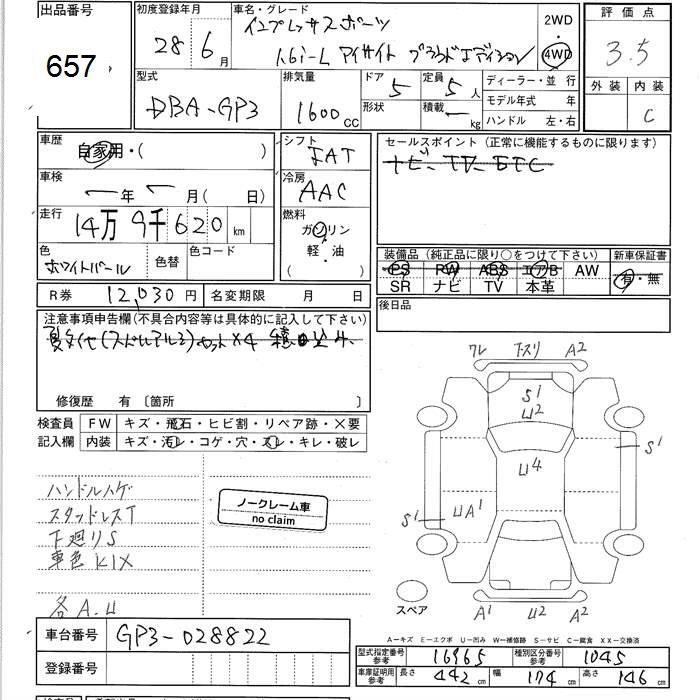 出品番号 657
初度登録年月 28年 6月
車名・グレード インプレッサスポーツ
1.6i-L アイサイト プラウドエディション
2WD・4WD
評価点 3.5
外装 内装 C
型式 DBA-GP3
排気量 1600 CC
ドア 5 形状
定員 5人 積載 ー kg
ディーラー・並行
モデル年式 年
ハンドル 左・右
車歴 自家用・( )
シフト FAT
セールスポイント(正常に機能するものに限ります)
ナビ TV ETC
車検 ー年 ー月( 日)
冷房 AAC
走行 14万9千620 km
燃料 ガソリン
軽・油
( )
色 ホワイトパール 色替 色コード
装備品(純正品に限り○をつけて下さい) 新車保証書
PS RW ABS エアB AW 有・無
SR ナビ TV 本革
R券 12,030円 名変期限 月 日
後日品
注意事項申告欄(不具合内容等は具体的に記入して下さい)
夏タイヤ(スドレアルミ)セット×4 積ロ込み
修復歴 有〔箇所
検査員 FW キズ・飛石・ヒビ割・リペア跡・×要
記入欄 内装 キズ・汚レ・コゲ・穴・スレ・キレ・破レ
ワレ 下スリ A2
S1
U2
U4
S1
S1 UA1
A1 U2 A2
スペア
ハンドルハゲ
スタッドレスT
下廻りS
車色KIX
各A.U
ノークレーム車
no claim
A-キズ E-エクボ U-凹み W-補修跡 S-サビ C-腐食 XX-交換済
車台番号 GP3-028822
登録番号
型式指定番号 参考 16965 種別区分番号 参考 1045
車庫証明用 参考 長さ 442 cm 幅 174 cm 高さ 146 cm